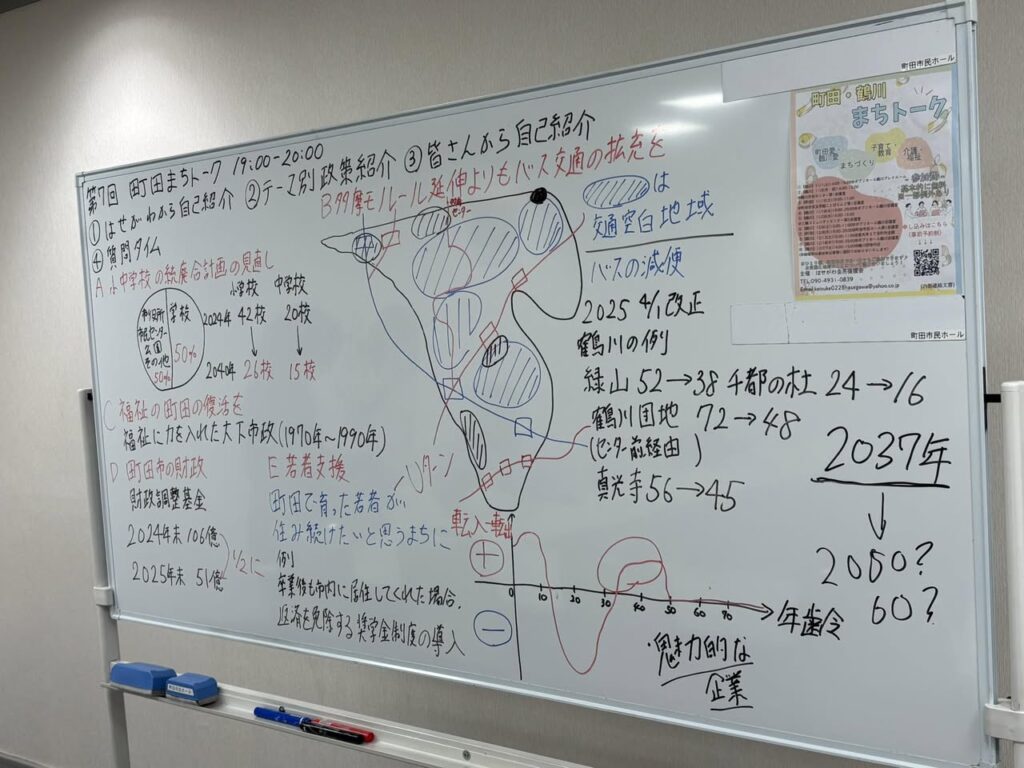 第7回 町田まちトーク 19:00-20:00
①はせがわから自己紹介 ②テーマ別政策紹介 ③皆さんから自己紹介
④質問タイム
A 小中学校の統廃合計画の見直し
小学校 中学校
2024年 42校 20校
2040年 26校 15校
学校
50%
市役所
市民センター
公園
その他
50%
B 多摩モノレール延伸よりもバス交通の拡充を
センター
は
交通空白地域
バスの減便
2025 4/1改正
鶴川の例
緑山 52→38 千都の杜 24→16
鶴川団地 72→48
(センター前経由)
真光寺 56→45
C 福祉の町田の復活を
福祉に力を入れた大下市政(1970年~1990年)
D 町田市の財政
財政調整基金
2024年末 106億
2025年末 51億
1/2に
E 若者支援
Uターン
町田で育った若者が、
住み続けたいと思うまちに
例
卒業後も市内に居住してくれた場合、
返済を免除する奨学金制度の導入
転入-転出
+
−
0 10 20 30 40 50 60 70
年歯令
・魅力的な
企業
2037年
↓
2050?
60?
町田市民ホール
町田・鶴川
まちトーク
子育て・
教育
まちづくり
申し込みはこちら
(事前予約制)
TEL:090-4931-0839
町田市民ホール